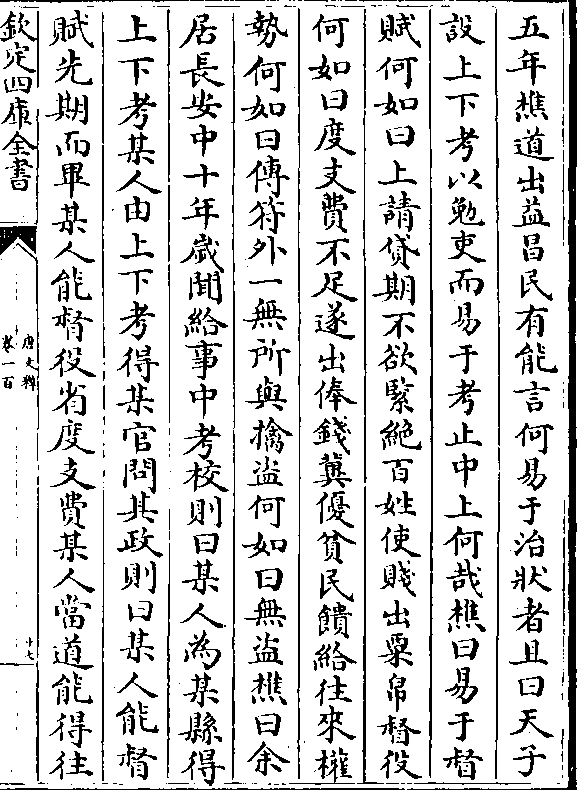 五年樵道出益昌民有能言何易于治狀者且曰天子
設上下考以勉吏而易于考止中上何哉樵曰易于督
賦何如曰上請貸期不欲緊絕百姓使賤出粟帛督役
何如曰度支費不足遂出俸錢冀優貧民饋給往來權
勢何如曰傳符外一無所與擒盗何如曰無盗樵曰余
居長安中十年歲聞給事中考校則曰某人為某縣得
上下考某人由上下考得某官問其政則曰某人能督
賦先期而畢某人能督役省度支費某人當道能得往
欽定四庫全書
唐文粹
卷一百
十七